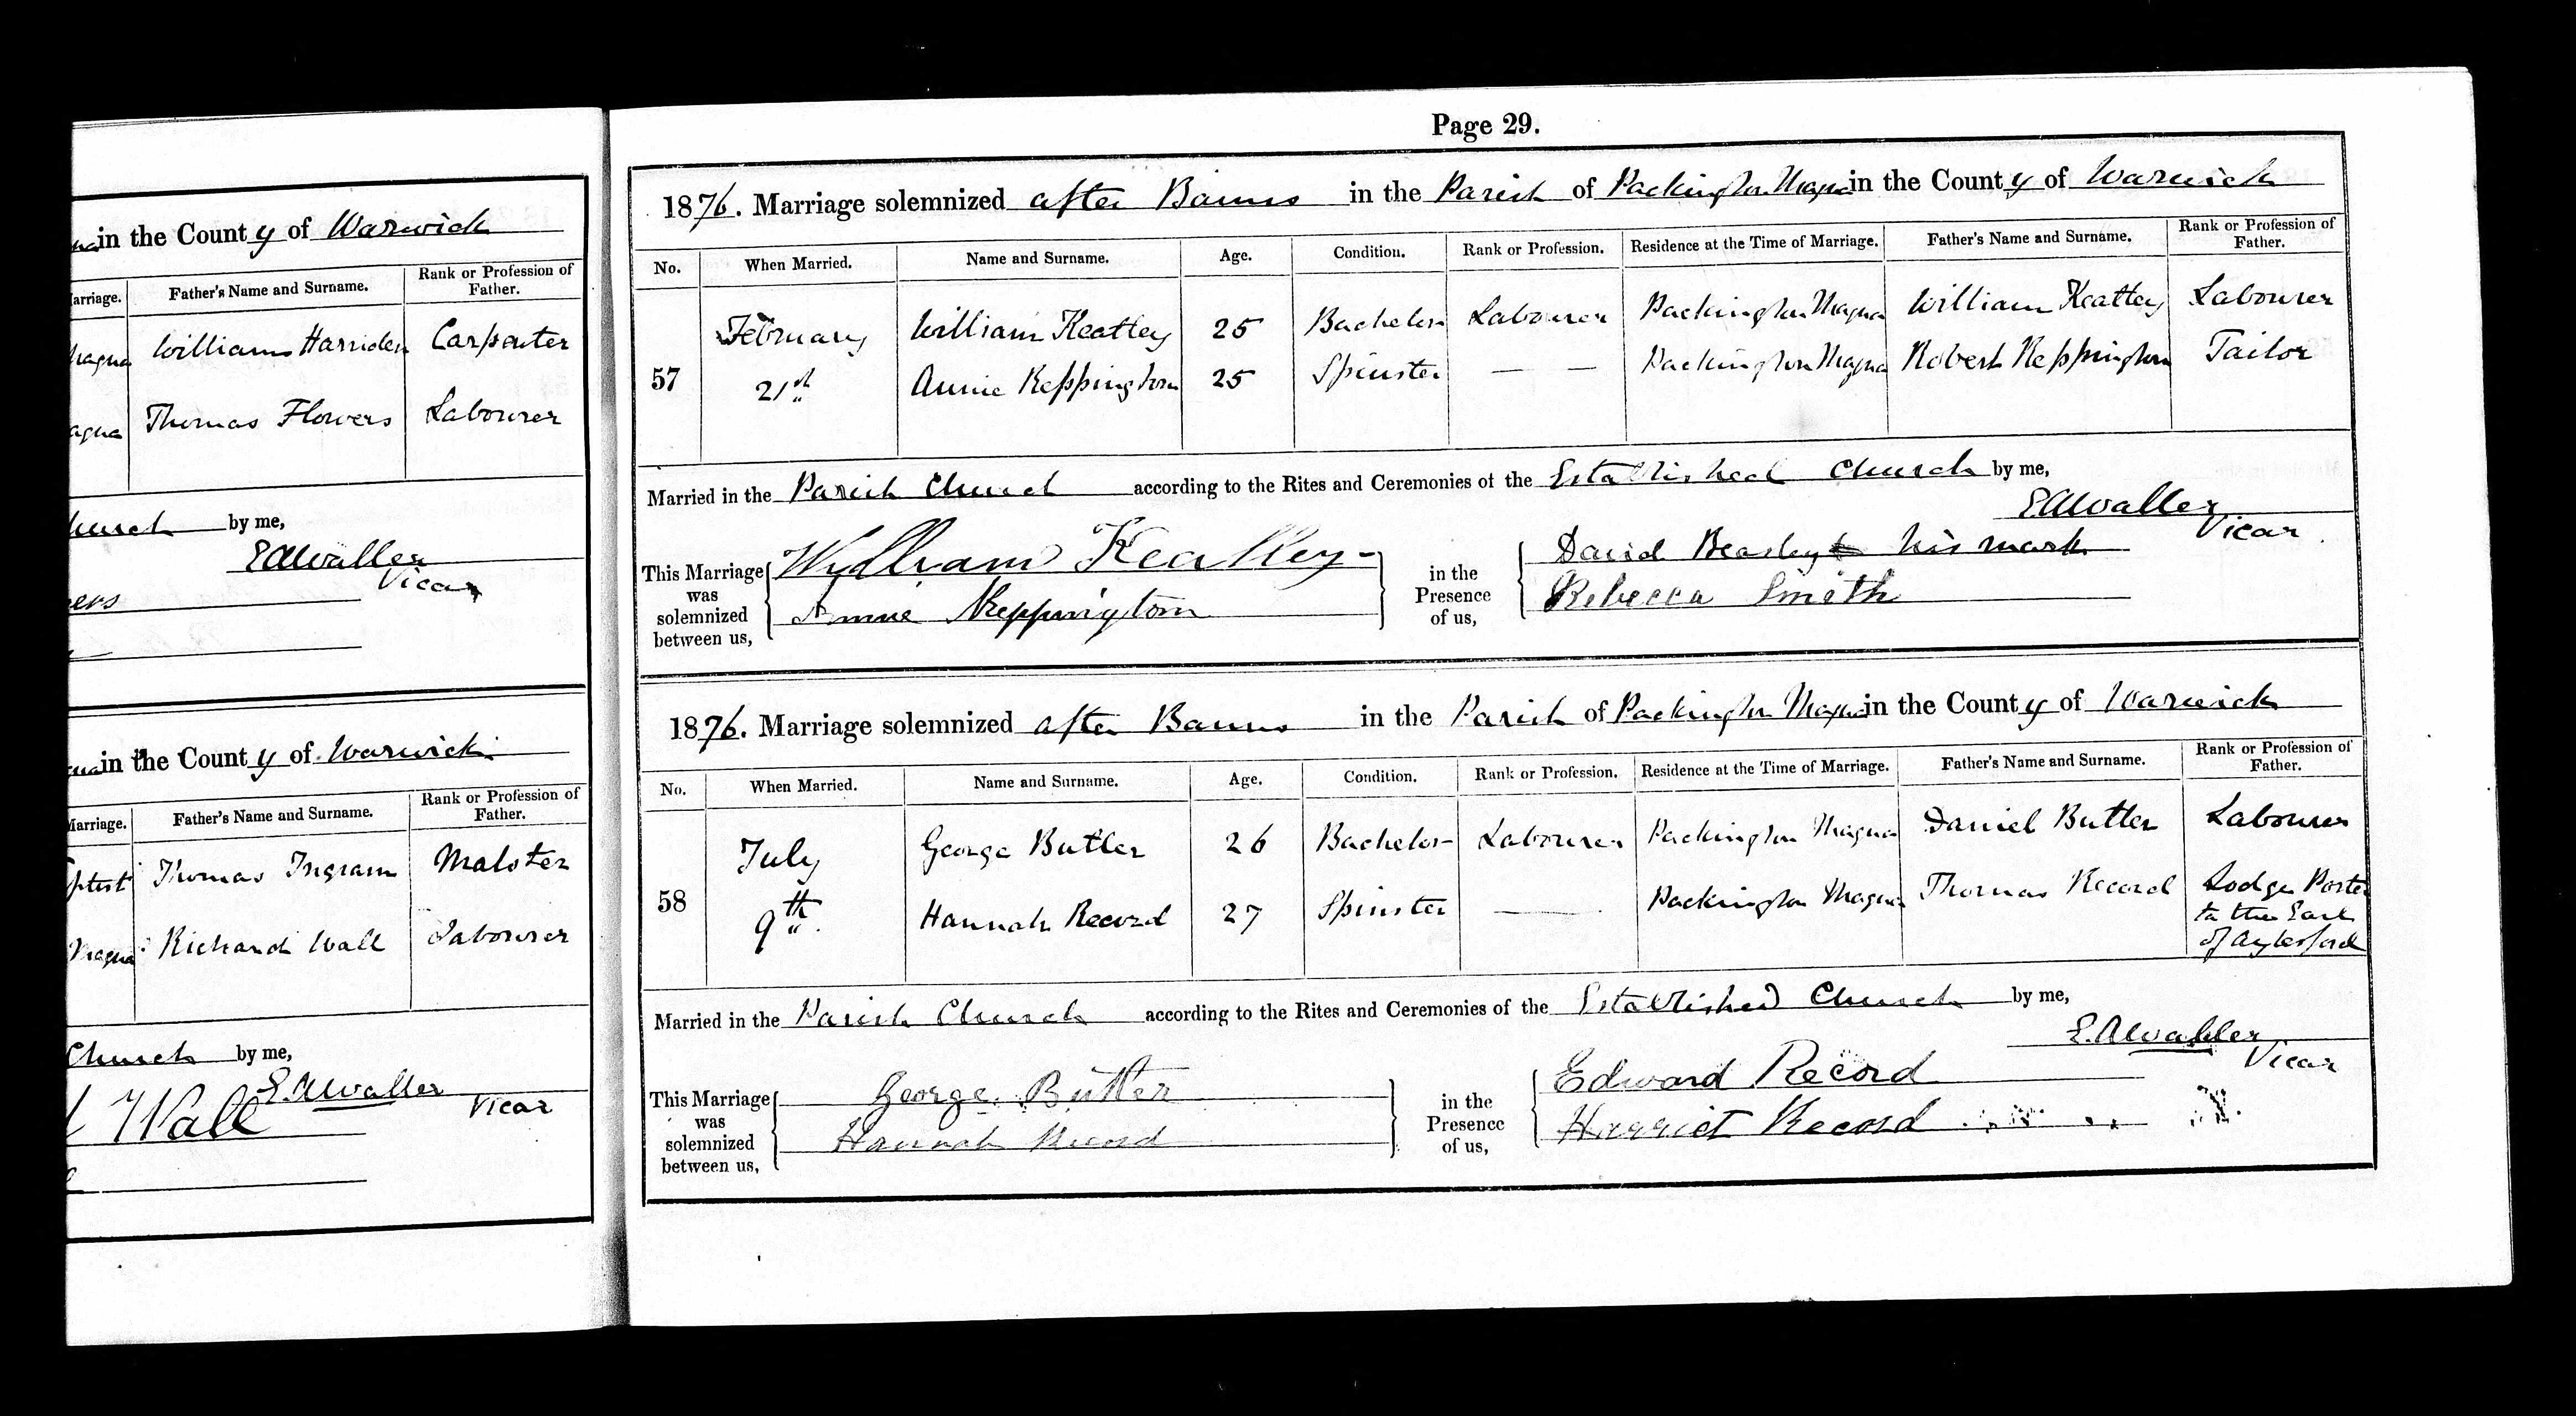 in the County of Warwick
arriage. Father's Name and Surname. Rank or Profession of Father.
magna William Harriden Carpenter
agna Thomas Flowers Labourer
hurch by me,
EAWaller
Vicar
ers
in the County of Warwick
Marriage. Father's Name and Surname. Rank or Profession of Father.
ptist Thomas Ingram Malster
magna Richard Wall Labourer
Church by me,
E.AWaller
Wall Vicar
Page 29.
1876. Marriage solemnized after Banns in the Parish of Packington Magna in the County of Warwick
No. When Married. Name and Surname. Age. Condition. Rank or Profession. Residence at the Time of Marriage. Father's Name and Surname. Rank or Profession of Father.
57 February William Keatley 25 Bachelor Labourer Packington Magna William Keatley Labourer
21st Annie Keppington 25 Spinster — — Packington Magna Robert Keppington Tailor
Married in the Parish Church according to the Rites and Ceremonies of the Established Church by me,
EAWaller
Vicar
This Marriage was solemnized between us, William Keatley
Annie Keppington
in the Presence of us, David Beasley his mark
Rebecca Smith
1876. Marriage solemnized after Banns in the Parish of Packington Magna in the County of Warwick
No. When Married. Name and Surname. Age. Condition. Rank or Profession. Residence at the Time of Marriage. Father's Name and Surname. Rank or Profession of Father.
58 July George Butler 26 Bachelor Labourer Packington Magna Daniel Butler Labourer
9th Hannah Record 27 Spinster — Packington Magna Thomas Record Lodge Porter
to the Earl
of Aylesford
Married in the Parish Church according to the Rites and Ceremonies of the Established Church by me,
E.AWaller
Vicar
This Marriage was solemnized between us, George Butler
Hannah Record
in the Presence of us, Edward Record
Harriet Record